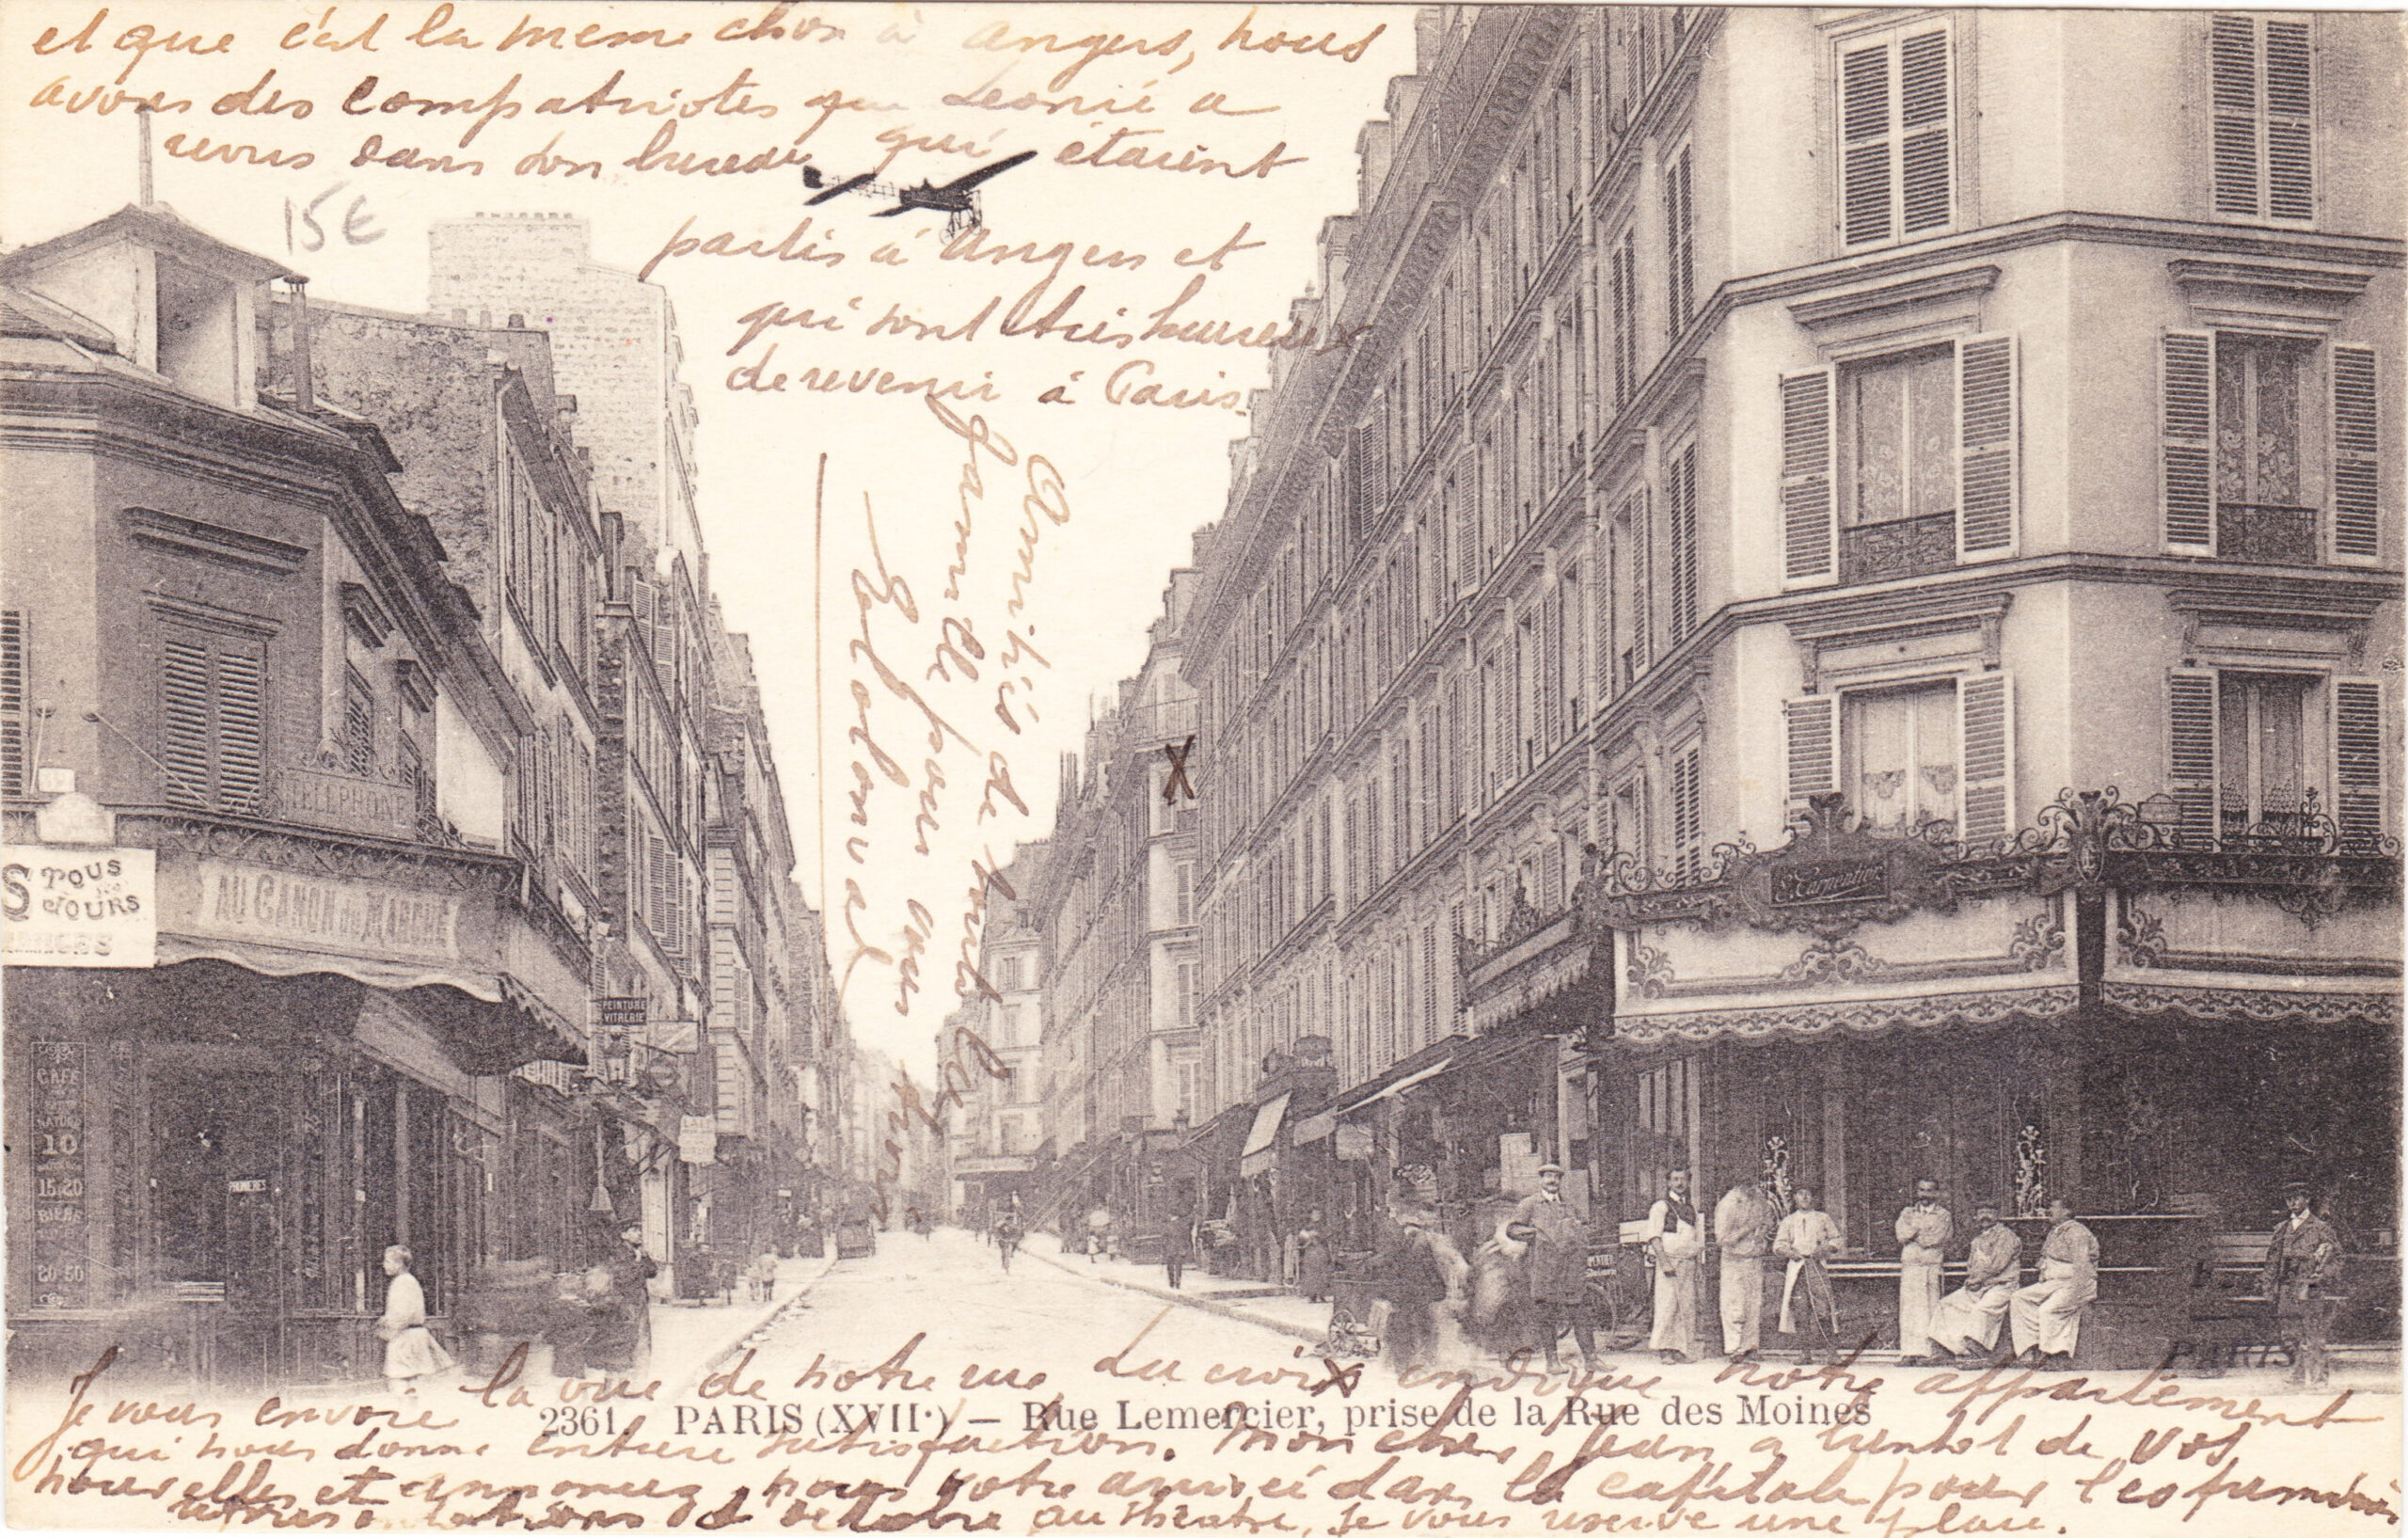 et que c'est la meme chose à Angers, nous
avons des compatriotes que Leonie a
revus dans son bureau qui étaient
15€
partis à Angers et
qui sont très heureux
de revenir à Paris.
Amitiés de toute la
famille pour vous trois
TELEPHONE
S TOUS
JOURS
AU CANON DU MARCHÉ
E. Carpentier
PEINTURE
VITRERIE
CAFÉ
NATURE
10
15.20
BIERE
20 50
X
PARIS
Je vous envoie la vue de notre rue La croix X indique notre appartement
2361. PARIS (XVIIe) — Rue Lemercier, prise de la Rue des Moines
qui nous donne entière satisfaction. Mon cher Jean a bientot de vos
nouvelles et annoncez nous votre arrivée dans la capitale pour les premières
d'octobre au théatre, je vous reserve une place.